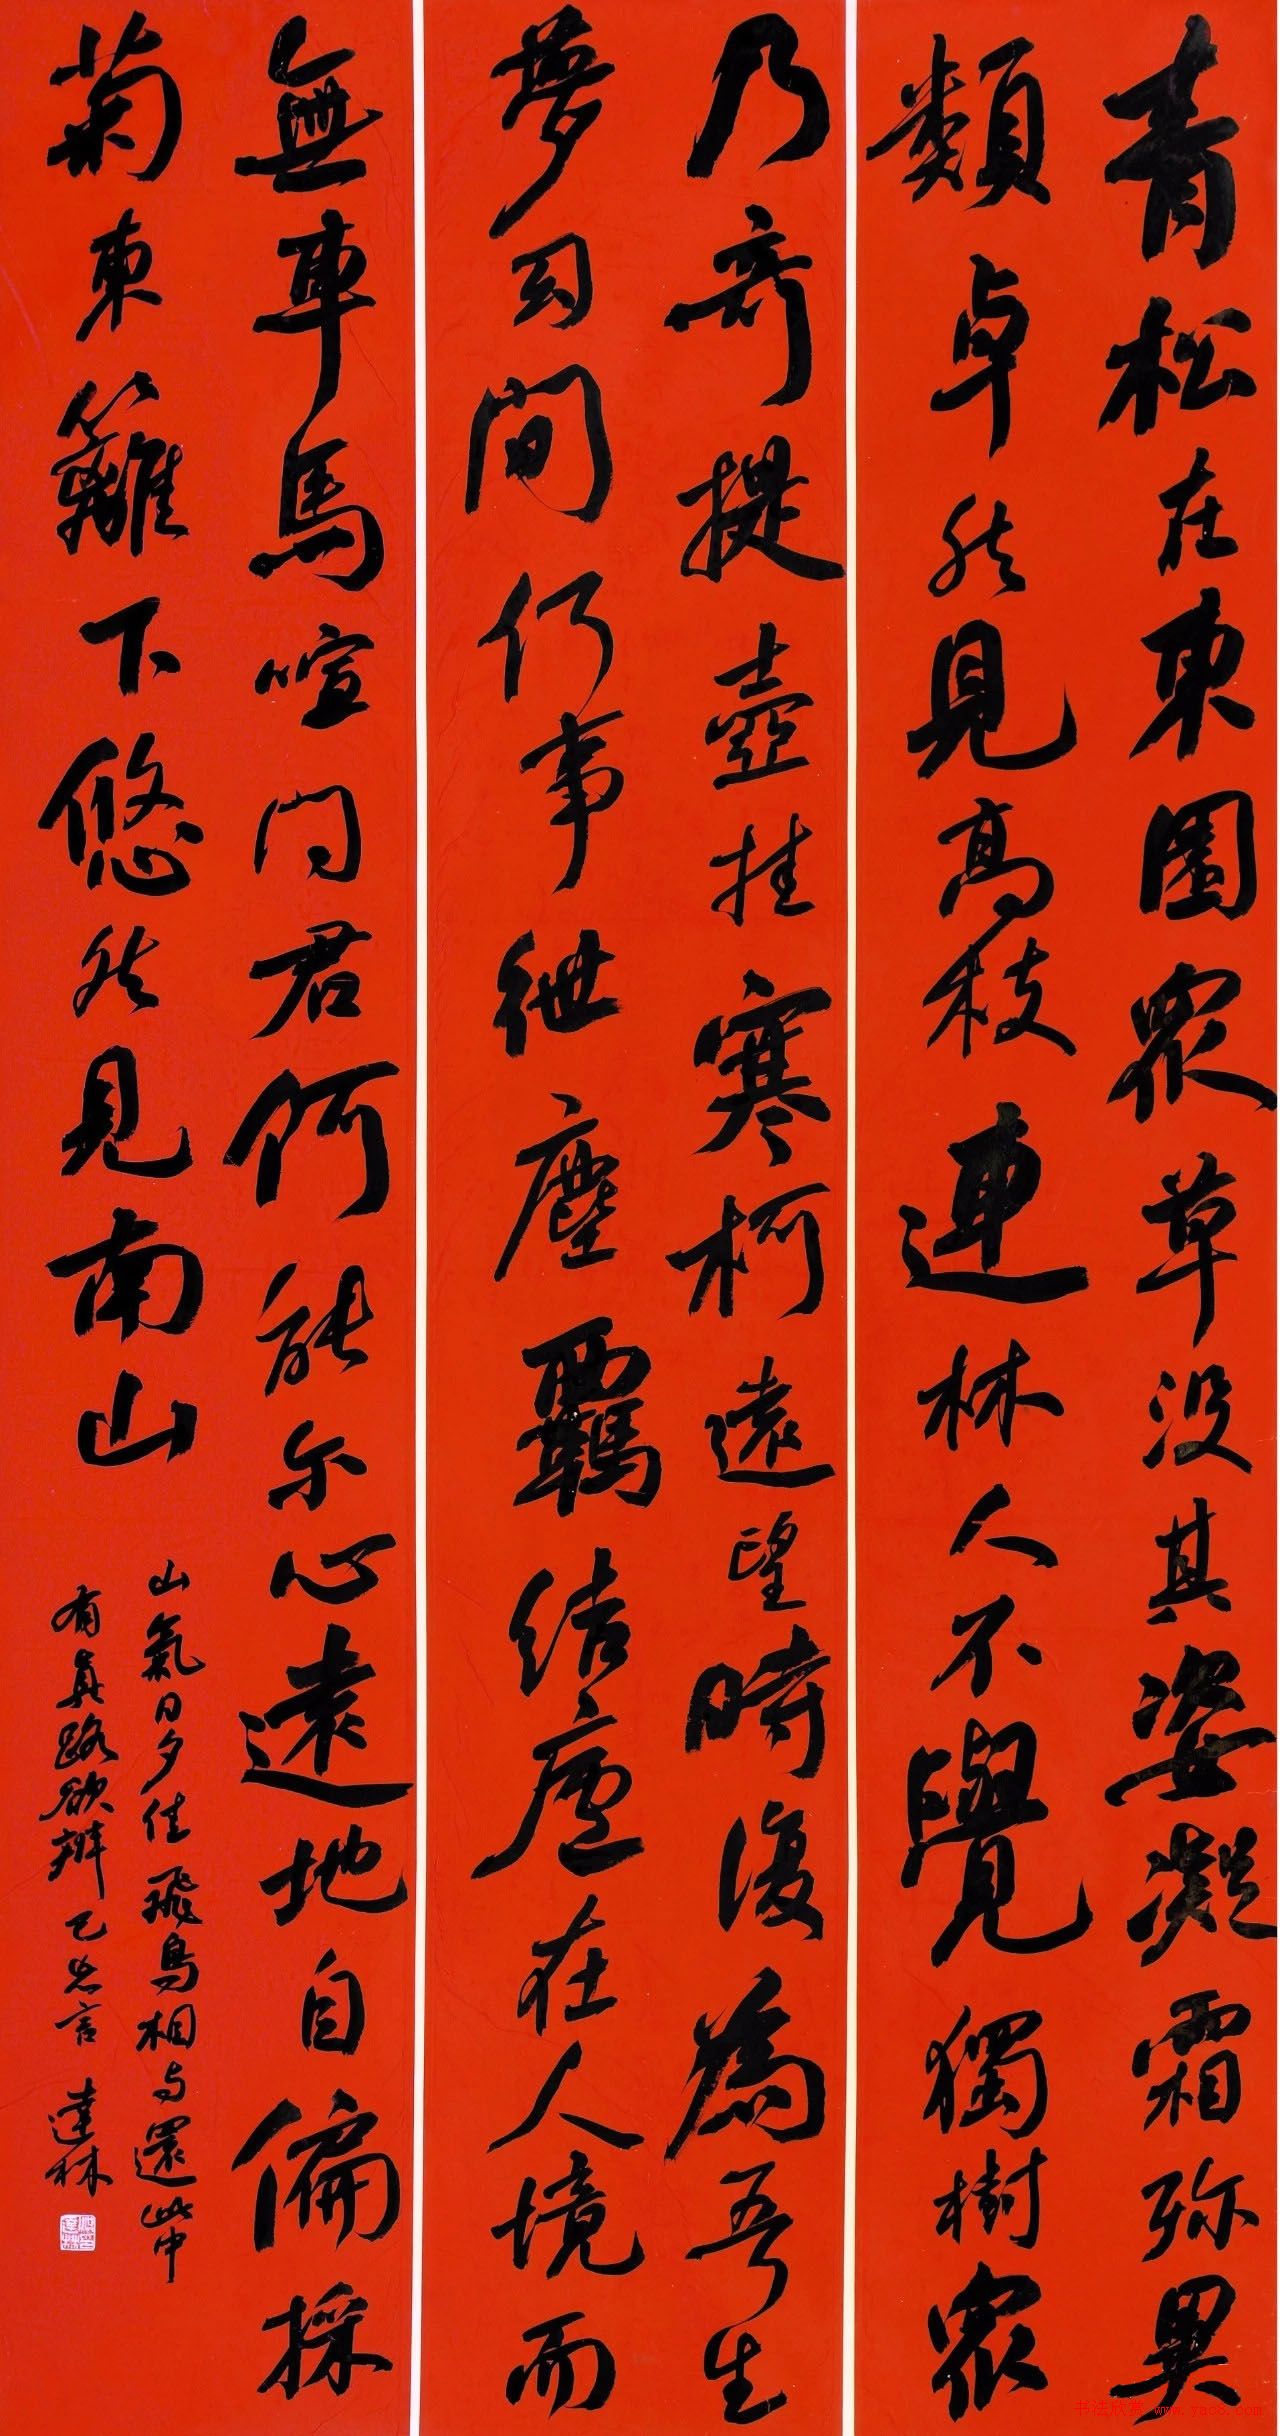 青松在東園眾草没其姿凝霜弥異
類卓然見高枝連林人不覺獨樹眾
乃奇提壺挂寒柯遠望時復為吾生
夢幻間仍事紲塵羈結廬在人境而
無車馬喧問君何能尔心遠地自偏採
菊東籬下悠然見南山
山氣日夕佳飛鳥相与還此中
有真路欲辨已忘言 達林
书法欣赏 www.yac8.com